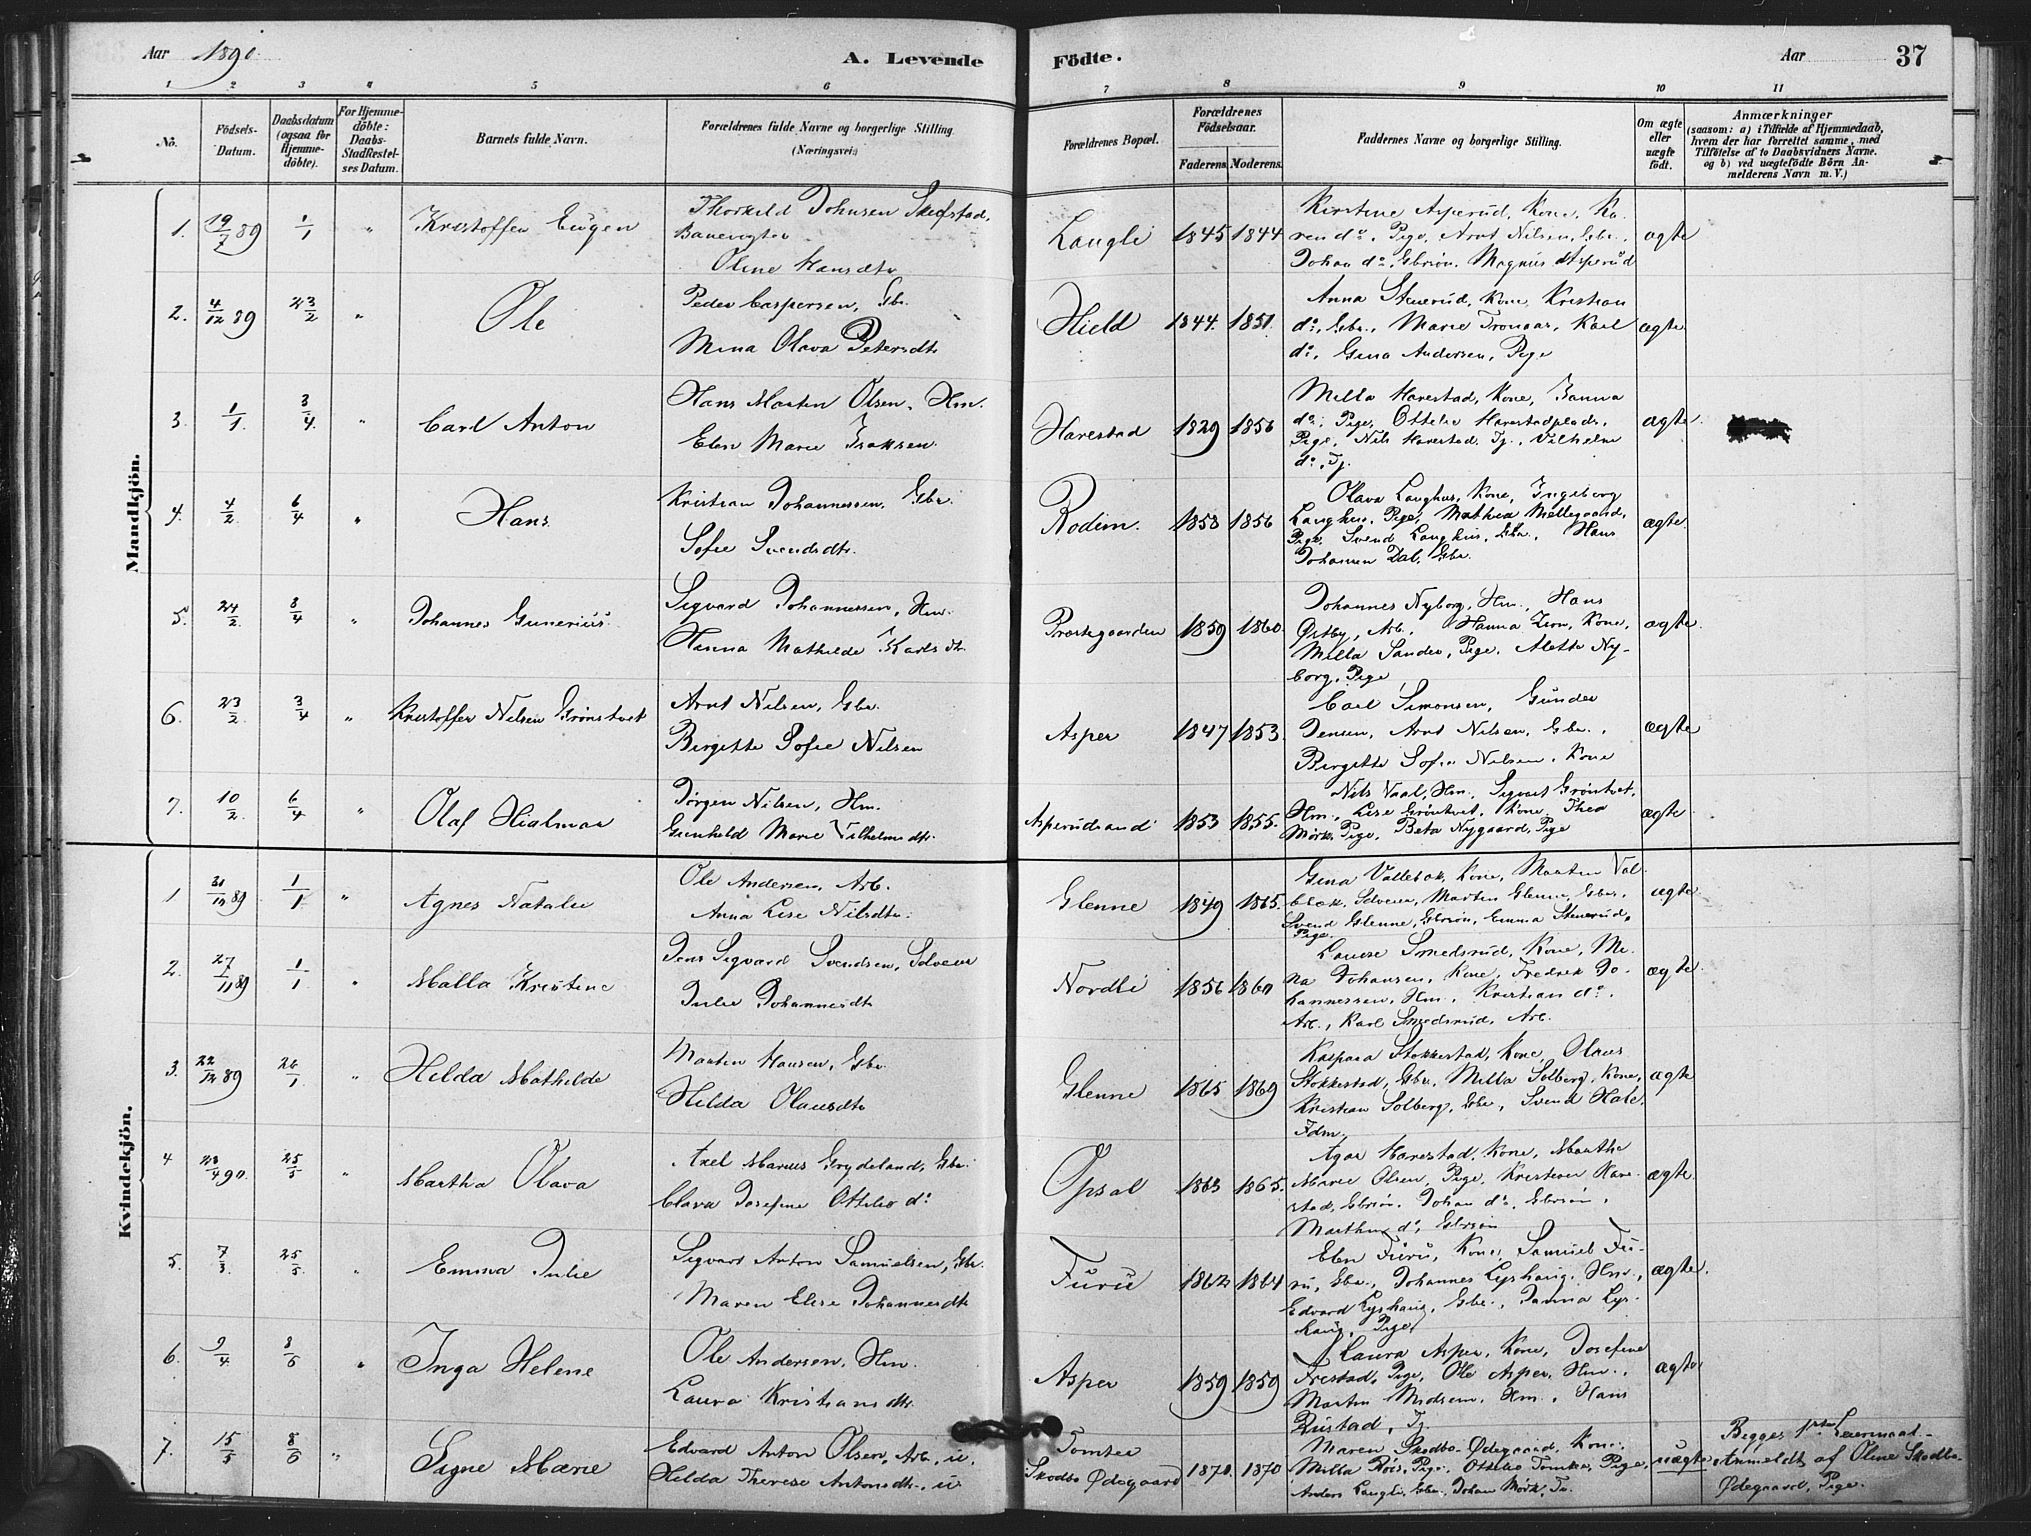 Aar 1890.
A. Levende Födte.
Aar
37
1 2 3 4 5 6 7 8 9 10 11
No.
Födsels-Datum.
Daabsdatum (ogsaa for Hjemme-döbte).
For Hjemme-döbte: Daabs-Stadfæstel-ses Datum.
Barnets fulde Navn.
Forældrenes fulde Navne og borgerlige Stilling. (Næringsvei.)
Forældrenes Bopæl.
Forældrenes Födselsaar.
Faderens. Moderens.
Faddernes Navne og borgerlige Stilling.
Om ægte eller uægte födt.
Anmærkninger
(saasom: a) i Tilfælde af Hjemmedaab,
hvem der har forrettet samme, med
Tilföielse af to Daabsvidners Navne.
og b) ved uægtefödte Börn An-
melderens Navn m. V.)
Mandkjön.
1. 19/7 89 1/1 " Kristoffer Eugen
Thorkild Johnsen Skofstad,
Banevogter
Oline Hansdtr
Langli 1845 1844
Kirstine Asperud, Kone, Ka-
ren do, Pige, Arnt Nilsen, Gbr.,
Johan do, Gbrsön. Magnus Asperud
ægte
2. 4/12 89 23/2 " Ole
Peder Caspersen, Gbr.
Mina Olava Petersdtr
Hield 1844. 1851.
Anna Stenerud, Kone, Kristian
do, Gbr., Marie Tronaas, Karl
do, Gina Andersen, Pige
ægte
3. 1/1. 3/4. " Carl Anton
Hans Martin Olsen, Hm.
Elen Marie Isaksen.
Harestad 1829 1856
Milla Harestad, Kone, Janna
do, Pige, Ottilie Harestadplads,
Pige, Nils Harestad, Tj., Vilhelm
do, Tj.
ægte.
4. 4/2 6/4 " Hans
Kristian Johannessen, Gbr.
Sofie Svendsdtr.
Rodim. 1858 1856
Olava Langhus, Kone, Ingeborg
Langhus, Pige, Mathea Möllegaard,
Pige, Svend Langhus, Gbr., Hans
Johansen Dal, Gbr.
ægte.
5. 24/2 8/4 " Johannes Gunerius.
Sigvard Johannessen, Hm.
Hanna Mathilde Karlsdtr.
Præstegaarden 1859 1860.
Johannes Nyborg, Hm., Hans
Østby, Arb., Hanna Lien, Kone,
Milla Sander, Pige, Alette Ny-
borg, Pige
ægte.
6. 23/2 3/4 " Kristoffer Nilsen Grönstvet
Arnt Nilsen, Gbr.
Birgitte Sofie Nilsen
Asper 1847 1853.
Carl Simonsen, Gunder
Jensen, Arnt Nilsen, Gbr.,
Birgitte Sofie Nilsen, Kone
ægte
7. 10/2 6/4 " Olaf Hialmar
Jörgen Nilsen, Hm.
Gunhild Marie Vilhelmsdtr.
Asperudsand 1853 1855.
Nils Vaal, Hm., Sigvart Grönstvet,
Hm., Lise Grönstvet, Kone, Thea
Mörk, Pige, Beta Nygaard, Pige
ægte
Kvindekjön.
1 31/12 89 1/1 " Agnes Natalie
Ole Andersen, Arb.
Anna Lise Nilsdtr.
Glenne 1849 1865.
Gina Vallebæk, Kone, Martin Val-
bæk, Selveier, Martin Glenne, Gbr.,
Svend Glenne, Gbrsön, Emma Stenerud,
Pige.
ægte
2. 27/11 89 1/1 " Malla Kristine
Jens Sigvard Svendsen, Selveier
Julie Johannesdtr
Nordli 1856 1860
Louise Smedsrud, Kone, Mi-
na Johansen, Kone, Fredrik Jo-
hannessen, Hm., Kristian do,
Arb., Karl Smedsrud, Arb.
ægte
3. 22/12 89 26/1 " Hilda Mathilde
Martin Hansen, Gbr
Hilda Olausdtr
Glenne 1865 1869
Kaspara Stokkestad, Kone, Olaus
Stokkestad, Gbr., Milla Solberg, Kone,
Kristian Solberg, Gbr., Svend Hale,
Fdm.
ægte
4 28/4 90. 25/5 " Martha Olava
Axel Marius Grydeland, Gbr.
Clara Josefine Ottilie do
Opsal 1863 1865.
Agar Harestad, Kone, Martha
Marie Olsen, Pige, Kristian Hare-
stad, Gbrsön, Johan do, Gbrsön,
Marthin do, Gbrsön
ægte.
5. 7/3 25/5 " Emma Julie
Sigvart Anton Samuelsen, Gbr.
Maren Elise Johannesdtr
Furu 1862 1864
Elen Furu, Kone, Samuel Fu-
ru, Gbr., Johannes Lyshaug, Hm.,
Edvard Lyshaug, Gbr., Janna Lys-
haug, Pige
ægte.
6. 9/4 8/6 " Inga Helene
Ole Andersen, Hm.
Laura Kristiansdtr.
Asper 1859 1859
Laura Asper, Kone, Josefine
Frestad, Pige, Ole Asper, Hm.,
Martin Madsen, Hm., Hans
Rustad, Tj.
ægte
7. 15/5 8/6 " Signe Marie
Edvard Anton Olsen, Arb., u.
Hilda Therese Antonsdtr., u.
Tomter
Skodbo Ødegaard 1870. 1870
Maren Skodbo Ødegaard, Kone,
Milla Röis, Pige, Ottilie Tomter, Pige,
Anders Langli, Gbr., Johan Mörk, Tj.
uægte
Begges 1ste Leiermaal.
Anmeldt af Oline Skodbo-
Ødegaard, Pige.